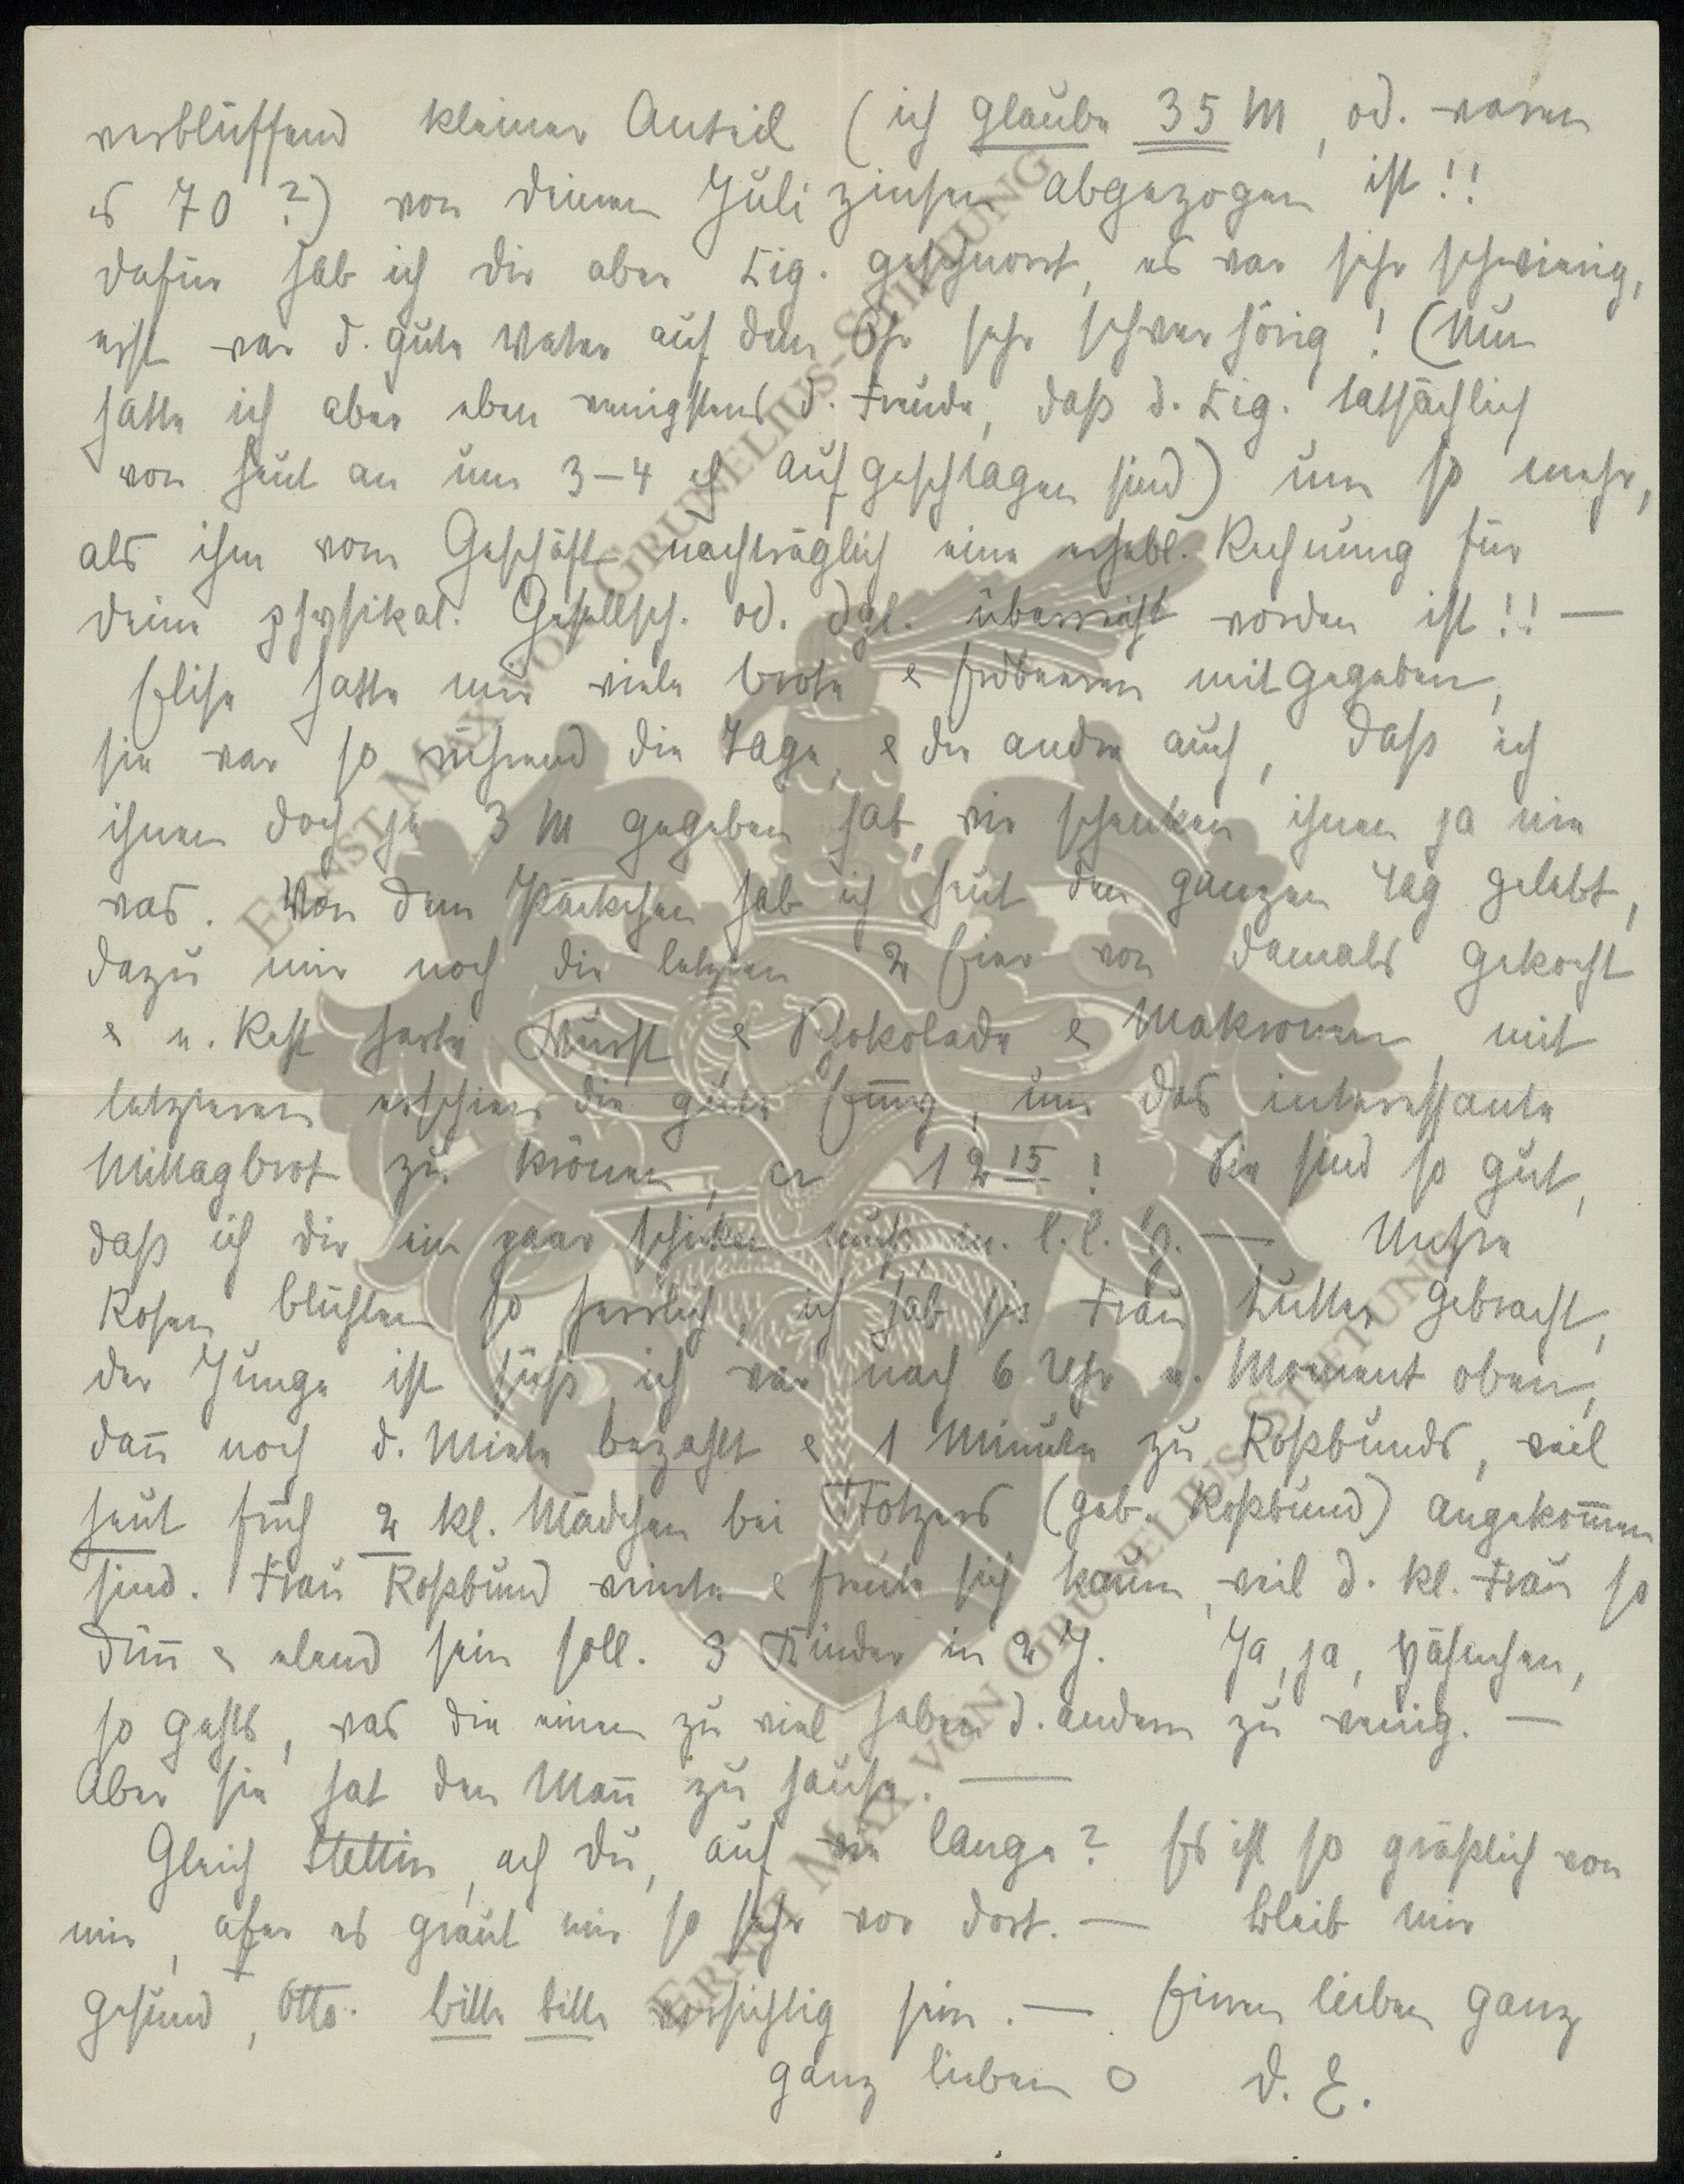 verblüffend kleiner Anteil (ich glaube 35 M, od. waren
es 70?) von deinen Juli zinsen abgezogen ist!!
dafür hab ich dir aber Zig. geschnorrt, es war sehr schwierig,
erst war d. gute Vater auf dem Ohr sehr schwerhörig! (Nun
hatte ich aber eben wenigstens d. Freude, daß d. Zig. tatsächlich
von heut an um 3-4 ₰ aufgeschlagen sind) um so mehr,
als ihm vom Geschäft nachträglich eine erhebl. Rechnung für
deine physikal. Gesellsch. od. dgl. überreicht worden ist!! —
Elise hatte mir viele Brote & Erdbeeren mitgegeben,
sie war so rührend die Tage, & die andre auch, daß ich
ihnen doch je 3 M gegeben hab, wir schenken ihnen ja nie
was. Von dem Päckchen hab ich heut den ganzen Tag gelebt,
dazu mir noch die letzten 2 Eier von damals gekocht
& n. Rest harte Wurst & Schokolade & Makronen, mit
letzteren erschien die gute Emmy, um das interessante
Mittagbrot zu krönen, cr 12 15! Sie sind so gut,
daß ich dir ein paar schicken muß, m. l. l. O. — Unsre
Rosen blühten so herrlich, ich hab sie Frau Lutter gebracht,
der Junge ist süß, ich war nach 6 Uhr n. Moment oben,
dan̄ noch d. Miete bezahlt & 1 Minute zu Roßbunds, weil
heut früh 2 kl. Mädchen bei Fotzers (geb. Roßbund) angekom̄en
sind. Frau Roßbund weinte & freute sich kaum, weil d. kl. Frau so
dün̄ & elend sein soll. 3 Kinder in 2 J. Ja, ja, Häschen,
so gehts, was die einen zu viel haben d. andern zu wenig. —
Aber sie hat den Man̄ zu Hause. —
Gleich Stettin, ach du, auf wie lange? Es ist so gräßlich von
mir, aber es graut mir so sehr vor dort. — Bleib mir
gesund, Otto. bitte bitte vorsichtig sein. — Einen lieben ganz
ganz lieben O D. E.
ERNST MAX VON GRUNELIUS-STIFTUNG
ERNST MAX VON GRUNELIUS-STIFTUNG